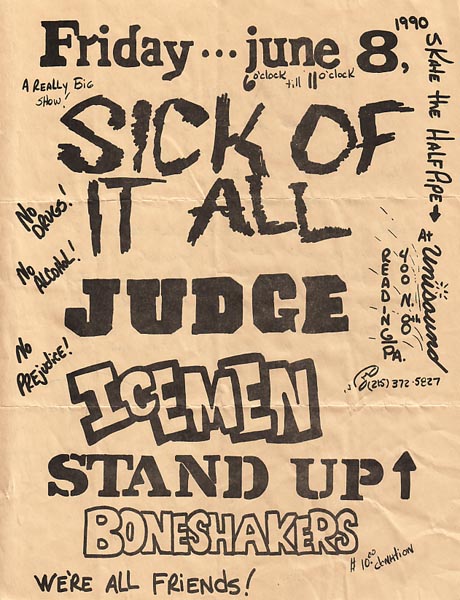 Friday ... june 8, 1990
6 o'clock till 11 o'clock
A REALLY BIG
SHOW!
SKATE the HALFPIPE →
SICK OF
IT ALL
No
DRUGS!
No
ALCOHOL!
No
PREJUDICE!
At Unisound
READING, PA.
(215) 372-5827
JUDGE
ICEMEN
STAND UP ↑
BONESHAKERS
$10.00 doNATION
WE'RE ALL FRIENDS!